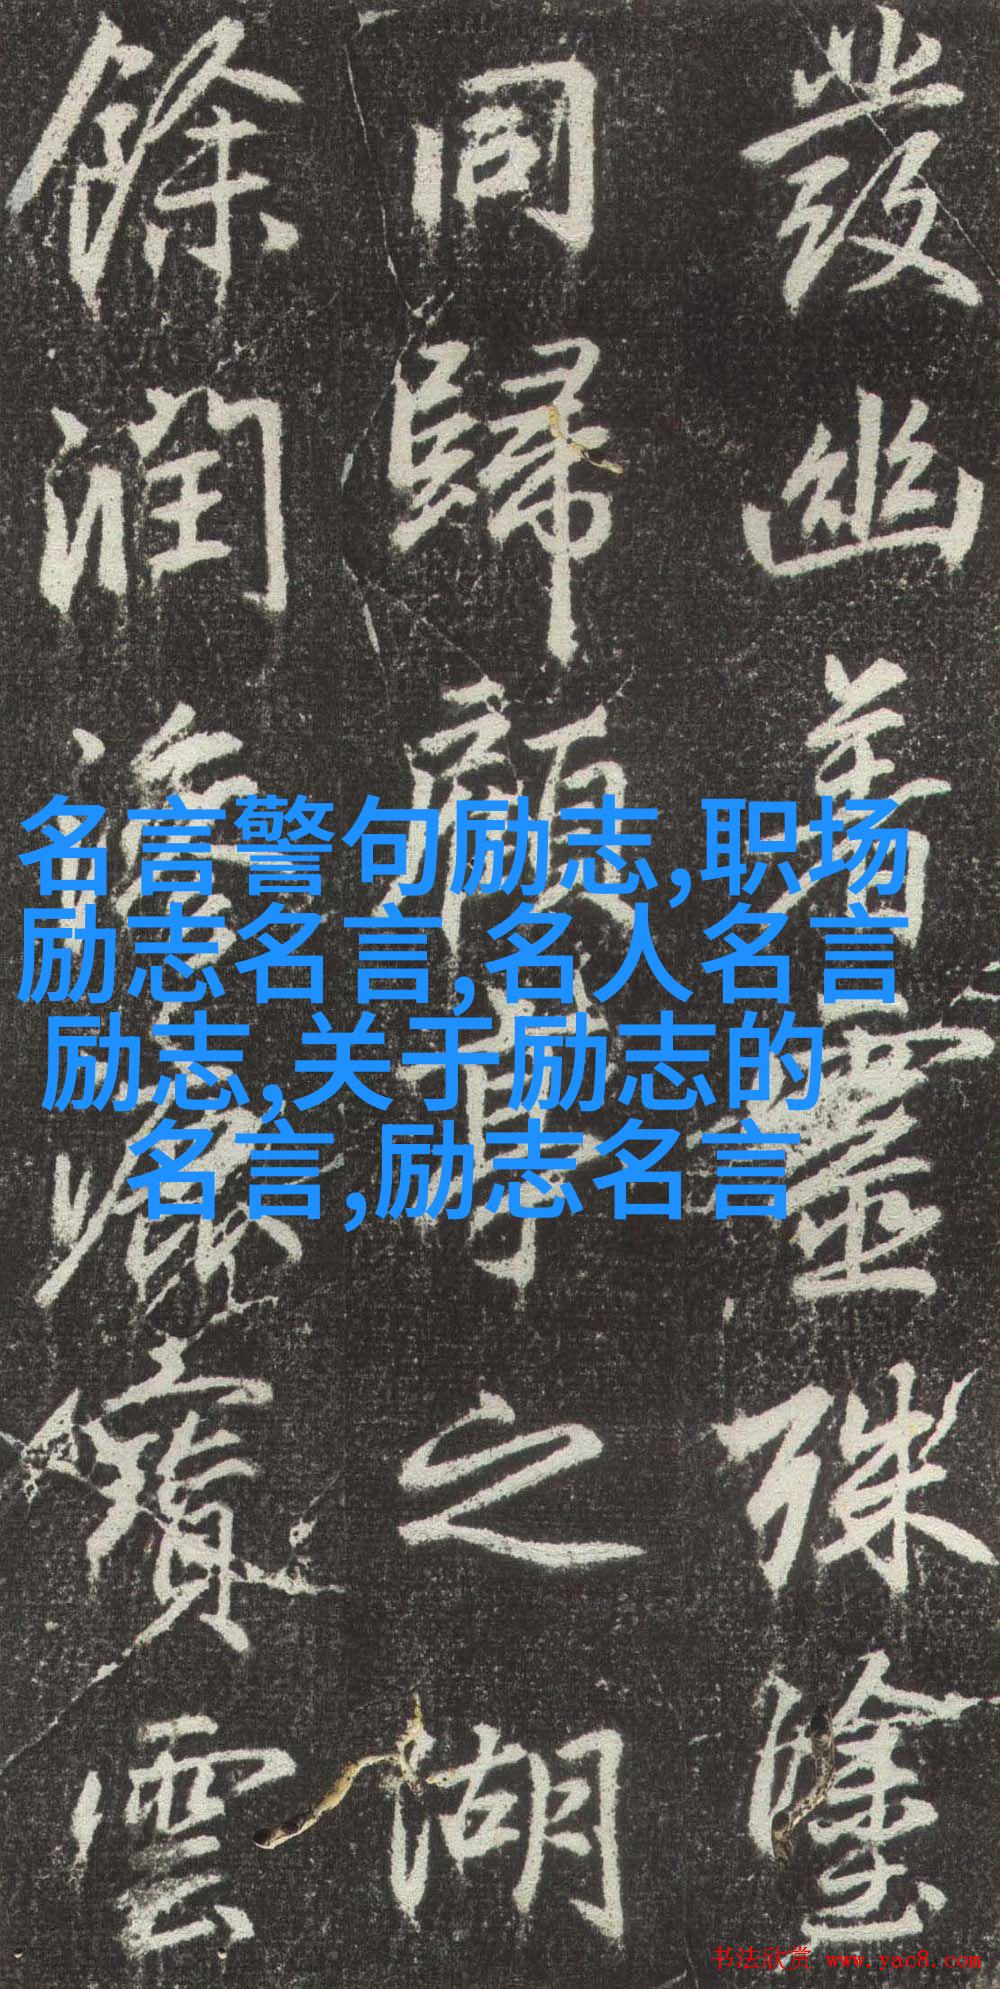 發幽著靈殊塗
同歸顧之湖
餘潤雲
名言警句励志,职场
励志名言,名人名言
励志,关于励志的
名言,励志名言
书法欣赏 www.yac8.com